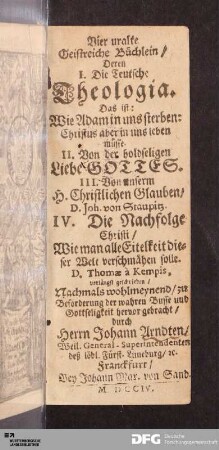 Vier uralte
Geistreiche Büchlein/
Deren
I. Die Teutsche
Theologia.
Das ist:
Wie Adam in uns sterben:
Christus aber in uns leben
müsse.
II. Von der holdseligen
Liebe GOTTES.
III. Von unserm
H. Christlichen Glauben/
D. Joh. von Staupitz.
IV. Die Nachfolge
Christi/
Wie man alle Eitelkeit die-
ser Welt verschmähen solle.
D. Thomæ à Kempis,
vorlängst geschrieben/
Nachmals wohlmeynend/ zu
Beforderung der wahren Busse und
Gottseligkeit hervor gebracht/
durch
Herrn Johann Arndten/
Weil. General-Superintendenten
deß löbl. Fürst. Lüneburg/ ꝛc.
Franckfurt/
Bey Johann Mar. von Sand.
M DCCIV.
SÄCHSISCHE
LANDESBIBLIOTHEK
DFG Deutsche
Forschungsgemeinschaft